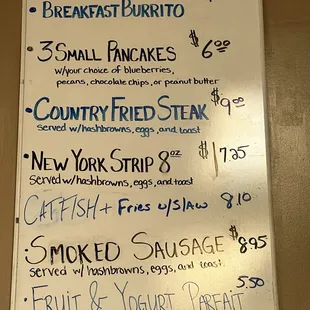 • BREAKFAST BURRITO
• 3 SMALL PANCAKES $6.00
w/your choice of blueberries,
pecans, chocolate chips, or peanut butter
• COUNTRY FRIED STEAK $9.00
served w/hashbrowns, eggs, and toast
• NEW YORK STRIP 8oz $17.25
served w/hashbrowns, eggs, and toast
CATFISH + Fries w/SlAW 8.10
• SMOKED SAUSAGE $8.95
served w/hashbrowns, eggs, and toast
• FRUIT & YOGURT PARFAIT 5.50